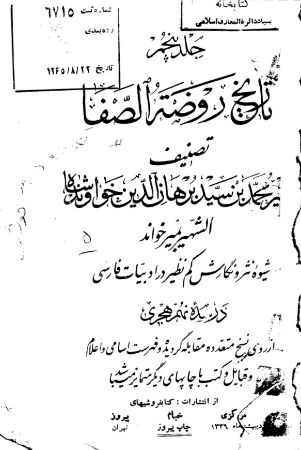 کتابخانه
بنیاد دائرة المعارف اسلامی
شماره ثبت ۶۷۱۵
رده بندی
تاریخ ۱۳۶۵/۸/۲۲
جلد پنجم
تاریخ روضة الصفا
تصنیف
میر محمد بن سید برهان الدین خواوند شاه
الشهیر بمیر خواند
شیوهٔ نثر و نگارش کم نظیر در ادبیات فارسی
در سدهٔ نهم هجری
از روی نسخ متعدده مقابله گردیده و فهرست اسامی و اعلام
و قبایل و کتب با چاپهای دیگر متمایز میباشد
از انتشارات : کتابفروشیهای
مرکزی خیام پیروز
۱۳۳۹ چاپ پیروز تهران